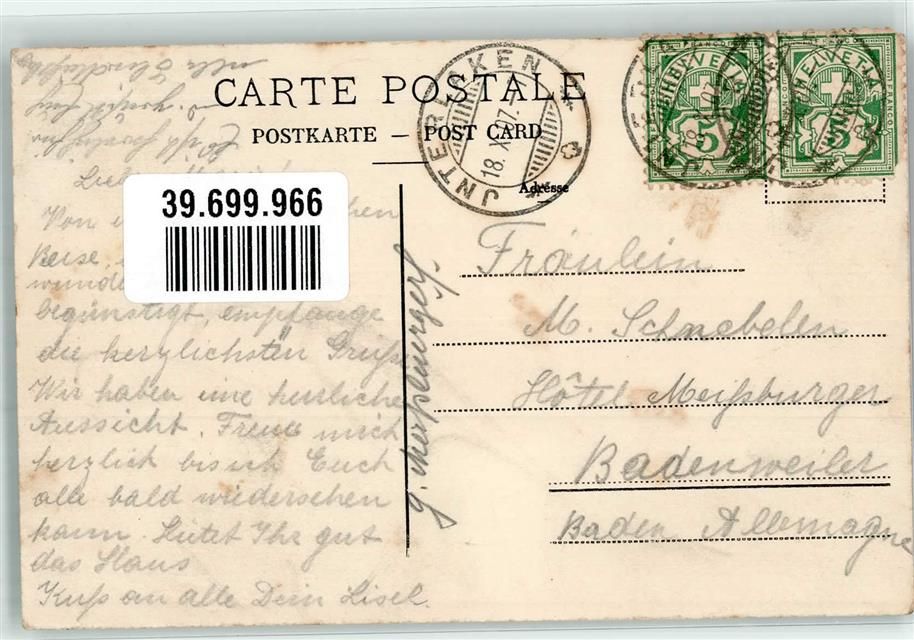 CARTE POSTALE
POSTKARTE – POST CARD
Adresse
INTERLAKEN
18. X. 07. –
HELVETIA
5
HELVETIA
5
FRANCO
39.699.966
Von
Reise,
begünstigt, empfange
die herzlichsten Grüße
Wir haben eine herrliche
Aussicht. Freue mich
herzlich bis ich Euch
alle bald wiedersehen
kann. Hütet Ihr gut
das Haus
Kuß an alle Dein Lisel.
Fräulein
M. Schnebelen
Hôtel Meißburger
Badenweiler
Baden Allemagne